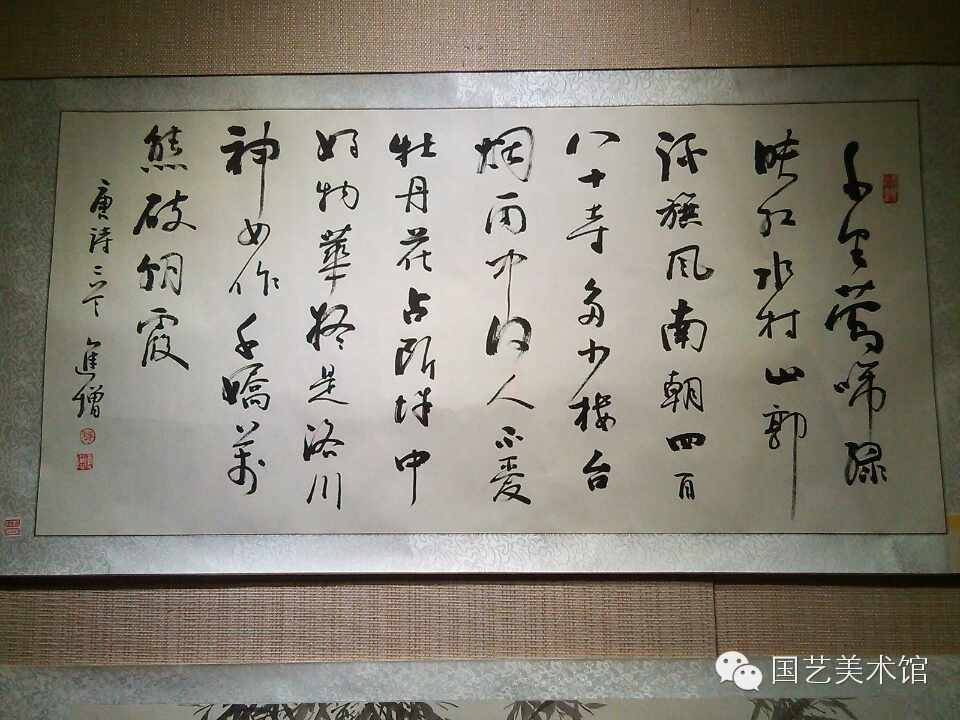 千里莺啼绿
映红水村山郭
酒旗风南朝四百
八十寺多少楼台
烟雨中何人不爱
牡丹花占断城中
好物華疑是洛川
神女作千嬌萬
態破朝霞
唐诗二首 進增
国艺美术馆